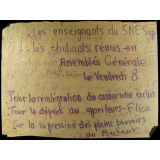 Les enseignants du SNESup
les étudiants réunis en
Assemblée Générale
le Vendredi 8
Pour la réintégration des camarades exclus
Pour le départ des
Sur la supression des pleins pouvoirs
du Recteur